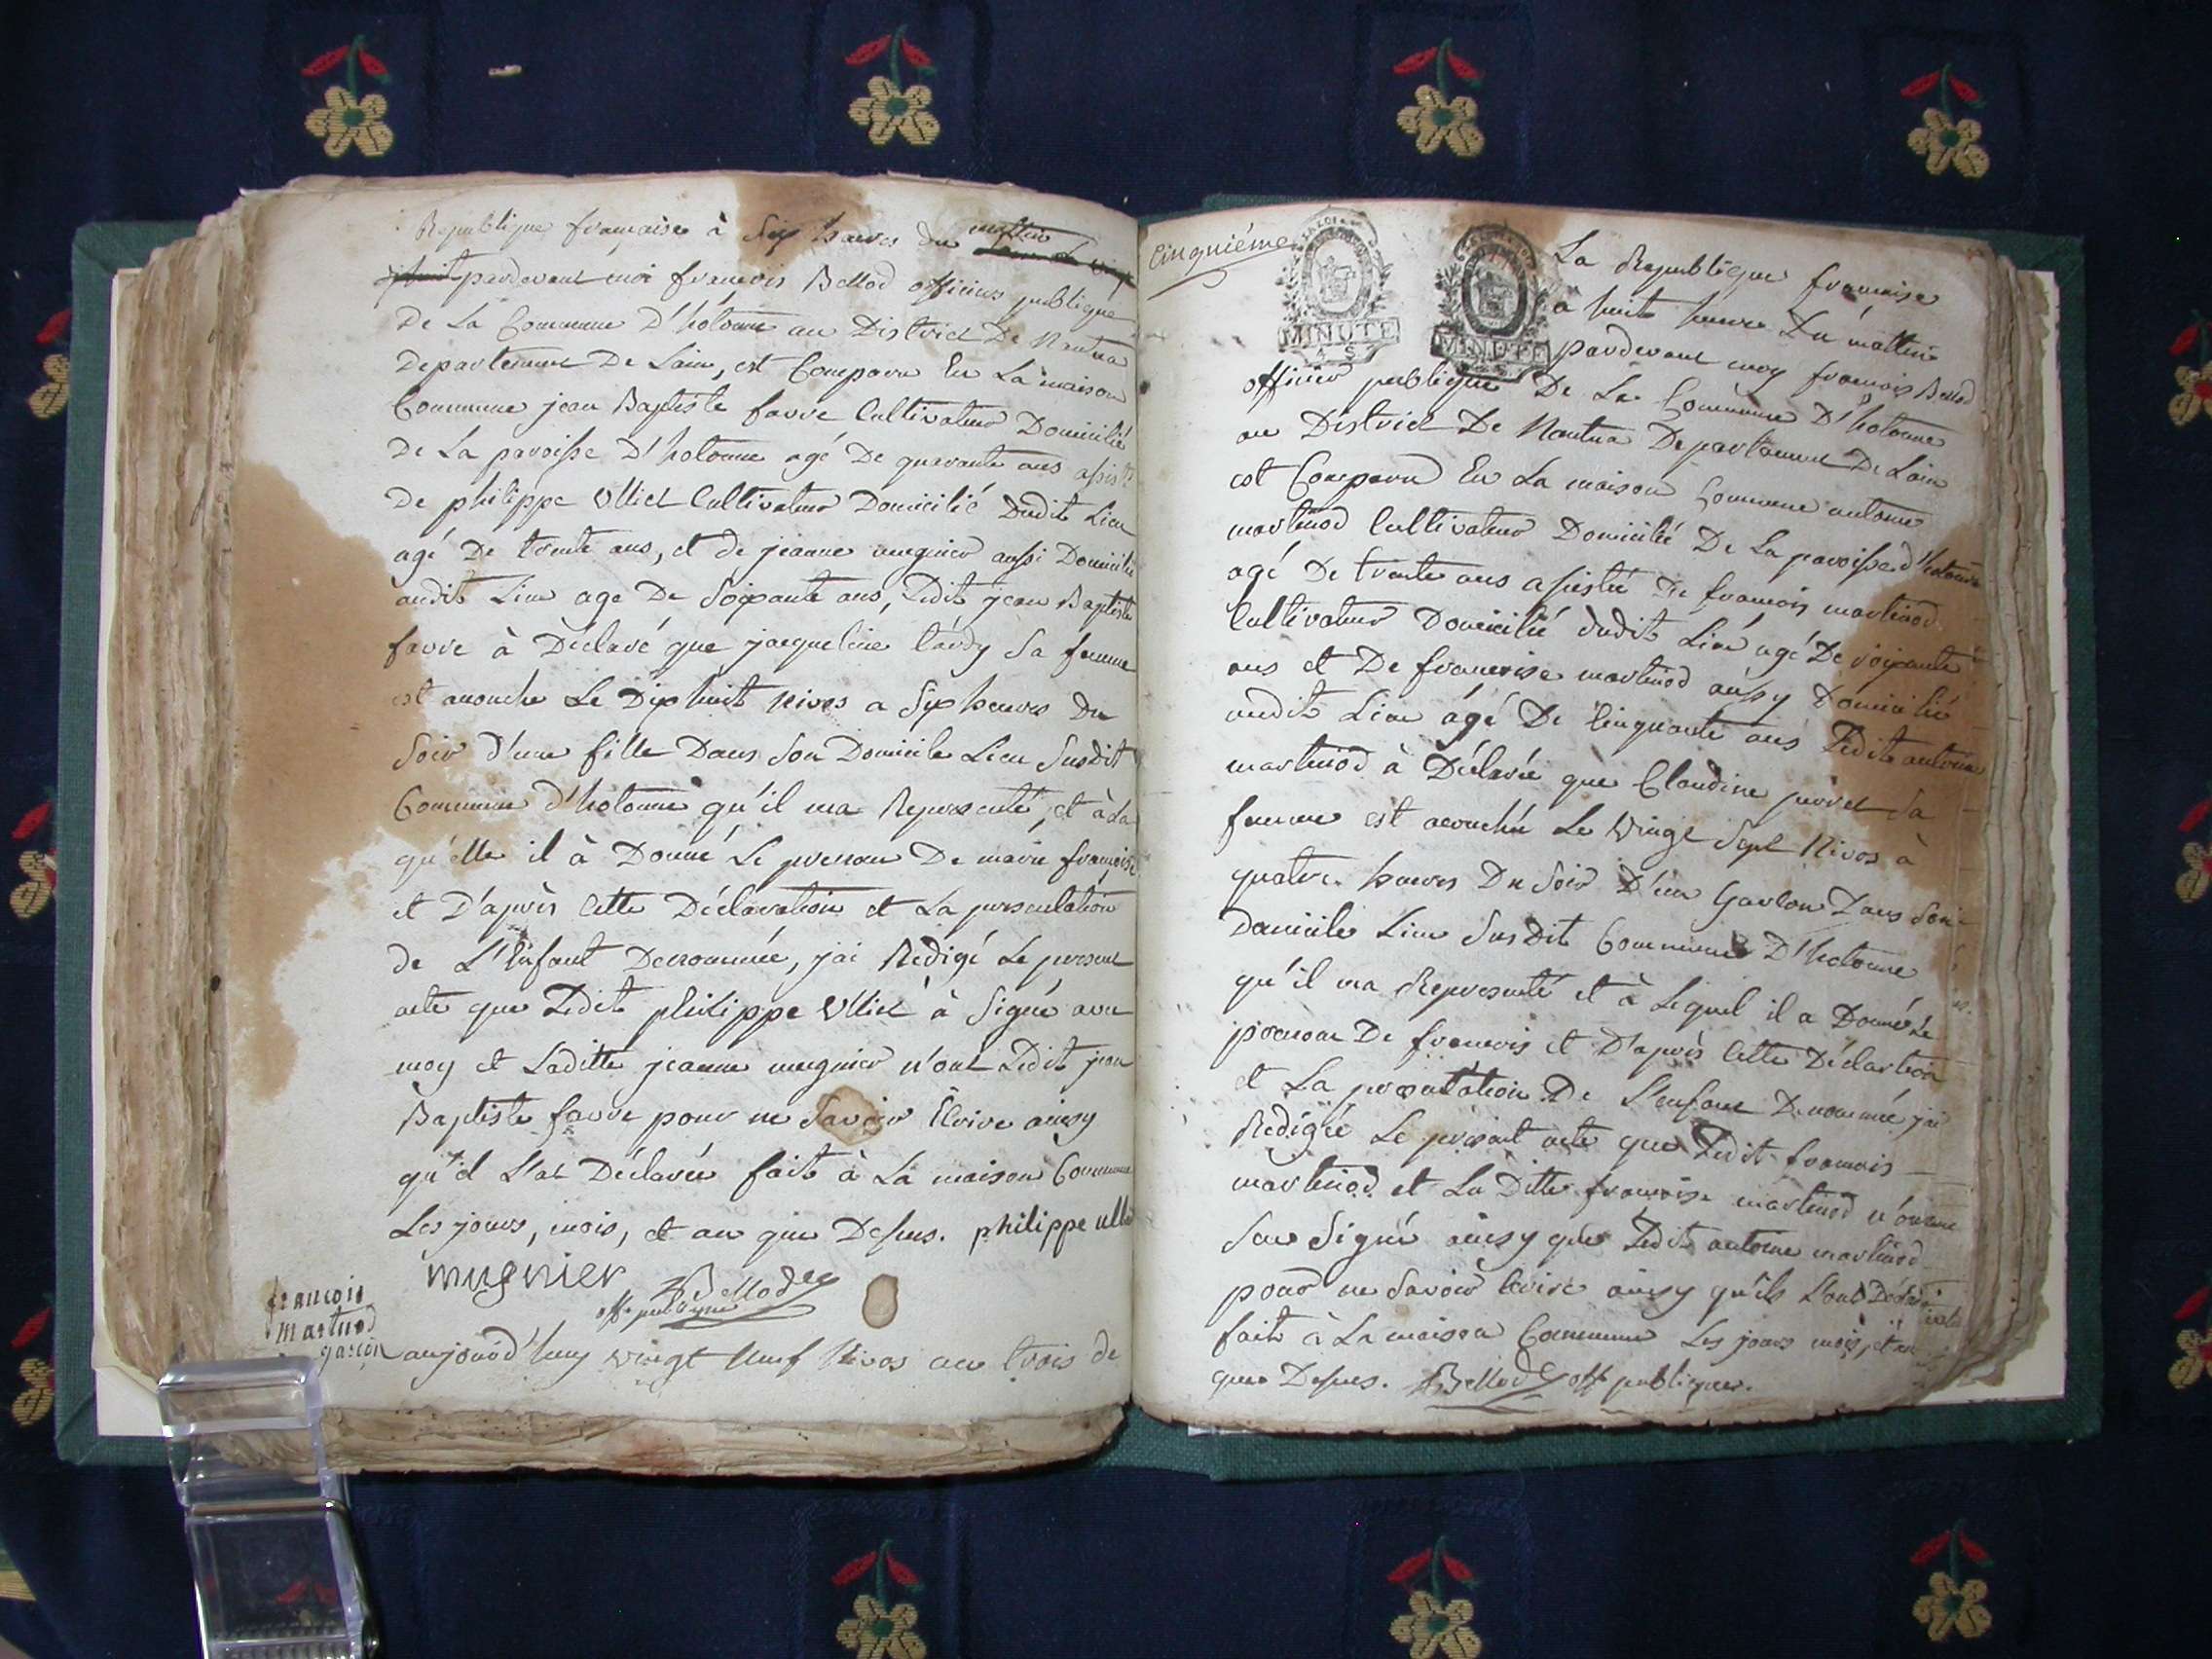 Republique française à Six heures du mattin
pardevant moi francois Bellod officier publique
De La Commune D'hotonne au District De Nantua
Departement De Lain, est Comparu En La maison
Commune jean Baptiste favre Cultivateur Domicilié
De La paroisse D'hotonne agé De quarante ans assisté
De philippe Ulliet Cultivateur Domicilié Dudit Lieu
agé De trente ans, et de jeanne mugnier aussi Domicilié
audit Lieu age De Soixante ans, Ledit jean Baptiste
favre à Déclaré que jacqueline tardy Sa femme
est acouché Le Dixhuit Nivos a Six heures Du
Soir d'une fille Dans Son Domicile Lieu Susdit
Commune d'hotonne qu'il ma Representé, et à La
qu'elle il à Donné Le prenom De marie francoise
et D'après Cette Déclaration et La presentation
de L'Enfant Denommée, jai Redigé Le present
acte que Ledit philippe Ulliet à Signé avec
moy et Laditte jeanne mugnier n'ont Ledit jean
Baptiste favre pour ne Savoir Ecrire ainsy
qu'il L'at Déclarée fait à La maison Commune
Les jours, mois, et an que Dessus. philippe ullie
mugnier
Bellod
off publique
francois
Martinod
garçon
aujourd'huy vingt Neuf Nivos an trois de
Cinquiéme
LA LOI
MINUTE
4 S
MINUTE
La Republique francaise
a huit heure Du mattin
pardevant moy francois Bellod
officier publique De La Commune D'hotonne
au District De Nantua Departement De Lain
est Comparu En La maison Commune antoine
martinod Cultivateur Domicilié De La paroisse d'hotonne
agé De trente ans assisté De francois martinod
Cultivateur Domicilié dudit Lieu agé De soixante
ans et De francoise martinod aussy Domicilié
audit Lieu ágé De Cinquante ans Ledit antoine
martinod à Déclarée que Claudine Sa
femme est acouchée Le vingt Sept Nivos à
quatre heures Du Soir D'un Garcon Dans Son
Domicile Lieu Susdit Commune D'hotonne
qu'il ma Representé et à Lequel il a Donné Le
prenom De francois et D'après Cette Déclartion
et La presentation De L'enfant Denommée jai
Redigée Le présent acte que Ledit francois
martinod et La Ditte francoise martinod n'ont
Signé ainsy que Ledit antoine martinod
pour ne Savoir Ecrire ainsy qu'ils L'ont
fait à La maison Commune Les jours mois, et an
que Dessus. Bellod off publique.